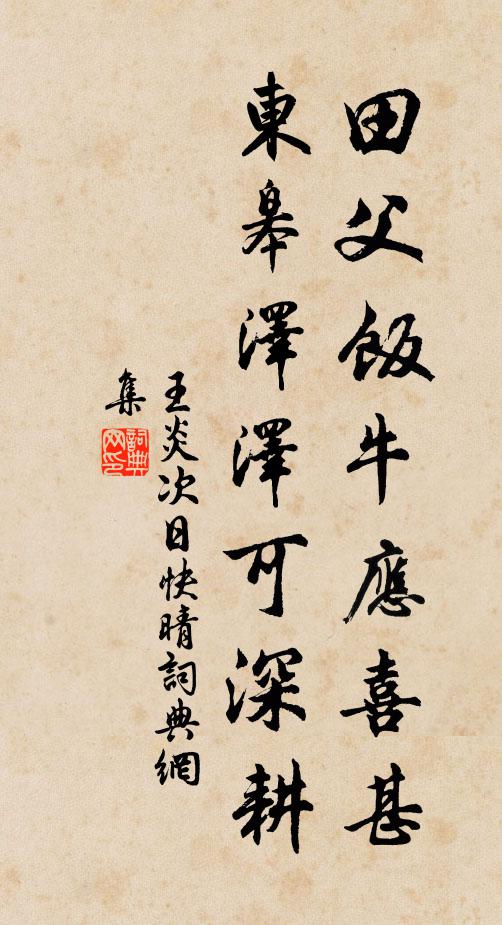 田父飯牛應喜甚
東皋澤澤可深耕
王炎次日快晴詞典網
集
詞典
网印